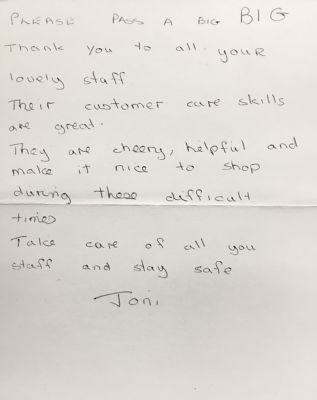 PLEASE PASS A BIG BIG
Thank you to all your
lovely staff
Their customer care skills
are great.
They are cheery, helpful and
make it nice to shop
during these difficult
times
Take care of all you
staff and stay safe
Toni